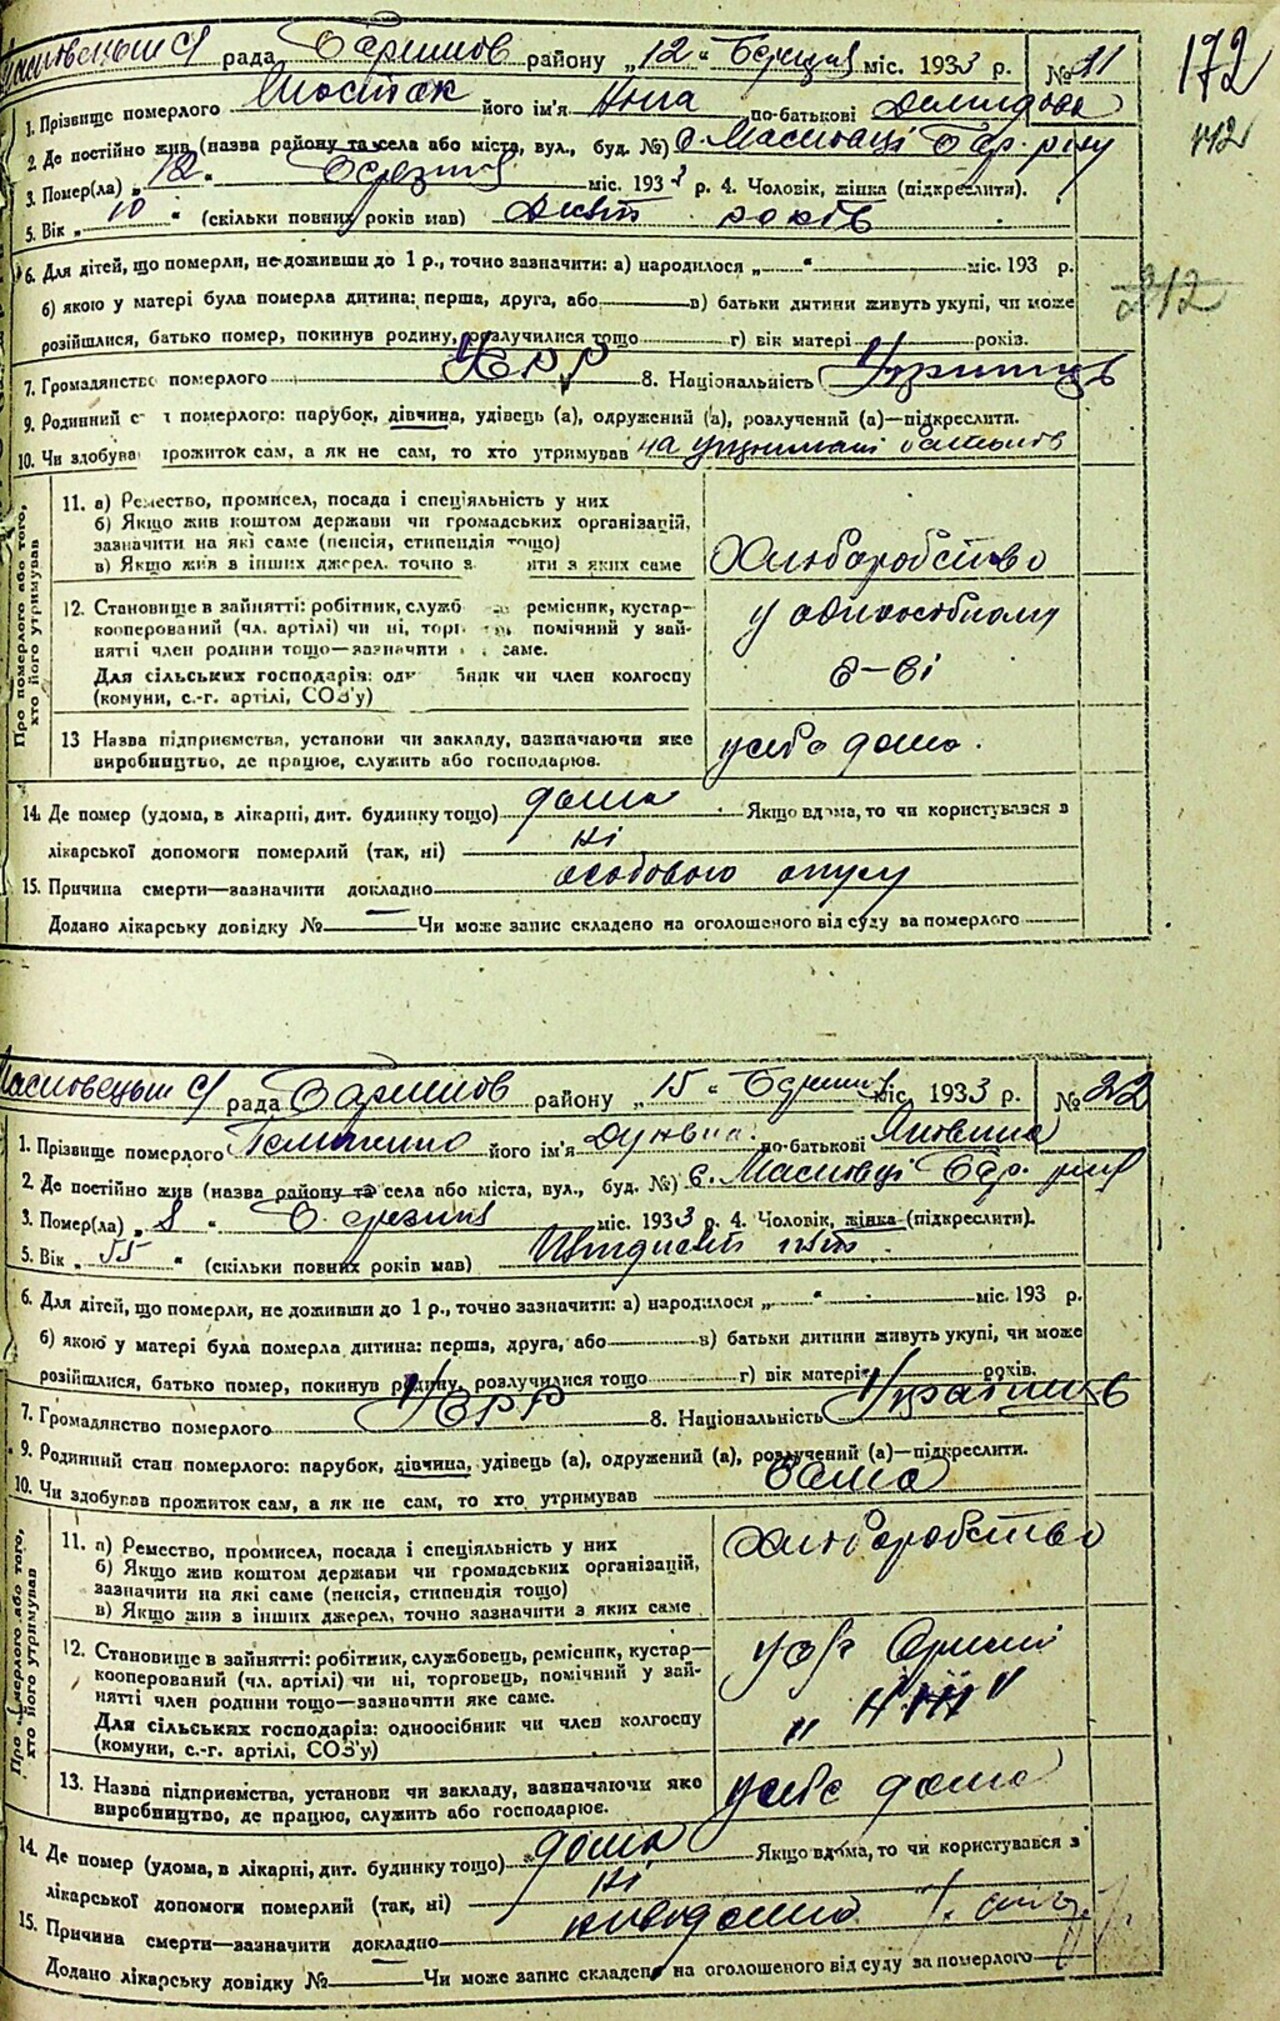 Масковецьки с/ рада Баришов району „12" Березня міс. 1933 р. №
172
1. Прізвище померлого Шостак його ім'я по-батькові Демидова
112
2. Де постійно жив (назва району та села або міста, вул., буд. №) с. Масківці Бар. р-ну
3. Помер(ла) „12" Березня міс. 1933 р. 4. Чоловік, жінка (підкреслити).
5. Вік „10" (скільки повних років мав) Десять років
6. Для дітей, що померли, не доживши до 1 р., точно зазначити: а) народилося „ " міс. 193 р.
212
б) якою у матері була померла дитина: перша, друга, або в) батьки дитини живуть укупі, чи може
розійшлися, батько помер, покинув родину, розлучилися тощо г) вік матері років.
7. Громадянство померлого УСРР 8. Національність Українців
9. Родинний с т померлого: парубок, дівчина, удівець (а), одружений (а), розлучений (а)—підкреслити.
10. Чи здобува прожиток сам, а як не сам, то хто утримував на утриманні батьків
Про померлого або того,
хто його утримував
11. а) Ремество, промисел, посада і спеціяльність у них
б) Якщо жив коштом держави чи громадських організацій,
зазначити на які саме (пенсія, стипендія тощо)
в) Якщо жив з інших джерел, точно з яти з яких саме
Хлюборобство
12. Становище в зайнятті: робітник, служб ремісник, кустар-
кооперований (чл. артілі) чи ні, торг помічний у зай-
нятті член родини тощо—зазначити саме.
Для сільських господарів: од бник чи член колгоспу
(комуни, с.-г. артілі, СОЗ'у)
у одноособному
г-ві
13 Назва підприємства, установи чи закладу, зазначаючи яке
виробництво, де працює, служить або господарює.
усебе дома.
14. Де помер (удома, в лікарні, дит. будинку тощо) дома Якщо вдома, то чи користувався з
лікарської допомоги померлий (так, ні) ні
15. Причина смерти—зазначити докладно опуху
Додано лікарську довідку № — Чи може запис складено на оголошеного від суду за померлого
Масковецьки с/ рада Баришов району „15" Березня міс. 1933 р. № 22
1. Прізвище померлого його ім'я по-батькові Яковина
2. Де постійно жив (назва району та села або міста, вул., буд. №) с. Масківці Бар. р-ну
3. Помер(ла) „8" Березня міс. 1933 р. 4. Чоловік, жінка (підкреслити).
5. Вік „55" (скільки повних років мав) Пятдисять пять.
6. Для дітей, що померли, не доживши до 1 р., точно зазначити: а) народилося „ " міс. 193 р.
б) якою у матері була померла дитина: перша, друга, або в) батьки дитини живуть укупі, чи може
розійшлися, батько помер, покинув родину, розлучилися тощо г) вік матері років.
7. Громадянство померлого УСРР 8. Національність Українців
9. Родинний стан померлого: парубок, дівчина, удівець (а), одружений (а), розлучений (а)—підкреслити.
10. Чи здобував прожиток сам, а як не сам, то хто утримував Сама
Про померлого або того,
хто його утримував
11. а) Ремество, промисел, посада і спеціяльність у них
б) Якщо жив коштом держави чи громадських організацій,
зазначити на які саме (пенсія, стипендія тощо)
в) Якщо жив з інших джерел, точно зазначити з яких саме
Хлюборобство
12. Становище в зайнятті: робітник, службовець, ремісник, кустар—
кооперований (чл. артілі) чи ні, торговець, помічний у зай-
нятті член родини тощо—зазначити яке саме.
Для сільських господарів: одноосібник чи член колгоспу
(комуни, с.-г. артілі, СОЗ'у)
13. Назва підприємства, установи чи закладу, зазначаючи яке
виробництво, де працює, служить або господарює.
усебе дома
14. Де помер (удома, в лікарні, дит. будинку тощо) дома Якщо вдома, то чи користувався з
лікарської допомоги померлий (так, ні) ні
15. Причина смерти—зазначити докладно невидома
Додано лікарську довідку № — Чи може запис складено на оголошеного від суду за померлого